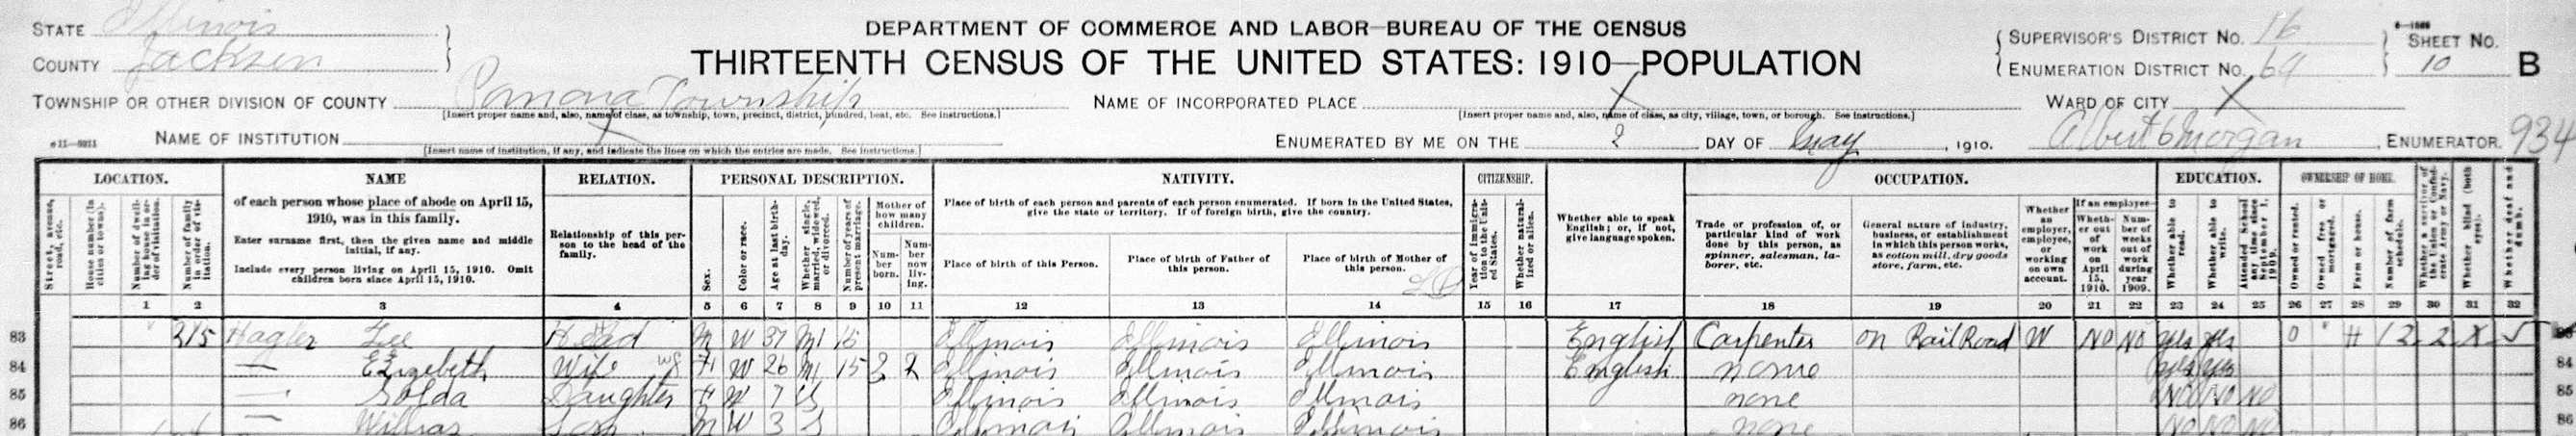 STATE Illinois
COUNTY Jackson
DEPARTMENT OF COMMERCE AND LABOR—BUREAU OF THE CENSUS
THIRTEENTH CENSUS OF THE UNITED STATES: 1910—POPULATION
SUPERVISOR'S DISTRICT NO. 16
ENUMERATION DISTRICT NO. 69
SHEET NO.
10 B
TOWNSHIP OR OTHER DIVISION OF COUNTY Pomona Township
[Insert proper name and, also, name of class, as township, town, precinct, district, hundred, beat, etc. See instructions.]
NAME OF INCORPORATED PLACE X
[Insert proper name and, also, name of class, as city, village, town, or borough. See instructions.]
WARD OF CITY X
NAME OF INSTITUTION X
[Insert name of institution, if any, and indicate the lines on which the entries are made. See instructions.]
ENUMERATED BY ME ON THE 2 DAY OF May, 1910.
Albert Morgan, ENUMERATOR. 934
LOCATION.
Street, avenue, road, etc.
House number (in cities or towns).
Number of dwelling house in order of visitation.
Number of family in order of visitation.
NAME
of each person whose place of abode on April 15, 1910, was in this family.
Enter surname first, then the given name and middle initial, if any.
Include every person living on April 15, 1910. Omit children born since April 15, 1910.
RELATION.
Relationship of this person to the head of the family.
PERSONAL DESCRIPTION.
Sex.
Color or race.
Age at last birthday.
Whether single, married, widowed, or divorced.
Number of years of present marriage.
Mother of how many children.
Number born.
Number now living.
NATIVITY.
Place of birth of each person and parents of each person enumerated. If born in the United States, give the state or territory. If of foreign birth, give the country.
Place of birth of this Person.
Place of birth of Father of this person.
Place of birth of Mother of this person.
CITIZENSHIP.
Year of immigration to the United States.
Whether naturalized or alien.
Whether able to speak English; or, if not, give language spoken.
OCCUPATION.
Trade or profession of, or particular kind of work done by this person, as spinner, salesman, laborer, etc.
General nature of industry, business, or establishment in which this person works, as cotton mill, dry goods store, farm, etc.
Whether an employer, employee, or working on own account.
If an employee—
Whether out of work on April 15, 1910.
Number of weeks out of work during year 1909.
EDUCATION.
Whether able to read.
Whether able to write.
Attended school any time since September 1, 1909.
OWNERSHIP OF HOME.
Owned or rented.
Owned free or mortgaged.
Farm or house.
Number of farm schedule.
Whether a survivor of the Union or Confederate Army or Navy.
Whether blind (both eyes).
Whether deaf and dumb.
1 2 3 4 5 6 7 8 9 10 11 12 13 14 15 16 17 18 19 20 21 22 23 24 25 26 27 28 29 30 31 32
83 215 Hagler Lee Head M W 37 M1 Illinois Illinois Illinois English Carpenter on Rail Road W NO NO yes yes O H
84 — Elizebeth Wife F W 26 M1 15 2 2 Illinois Illinois Illinois English none yes yes 84
85 — Golda Daughter F W 7 S Illinois Illinois Illinois none NO NO NO 85
86 — Son M W 3 S Illinois Illinois Illinois none NO NO NO 86